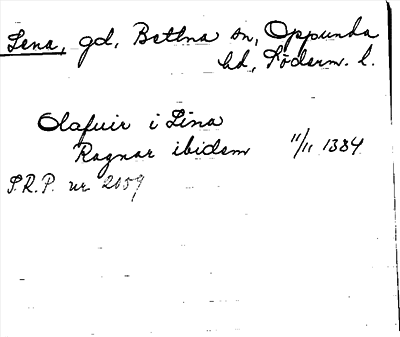 Lena, gd, Bettna sn, Oppunda
hd, Söderm. l.
Olafuir i Lina
Ragnar ibidem 11/11 1384
S.R.P. nr 2059